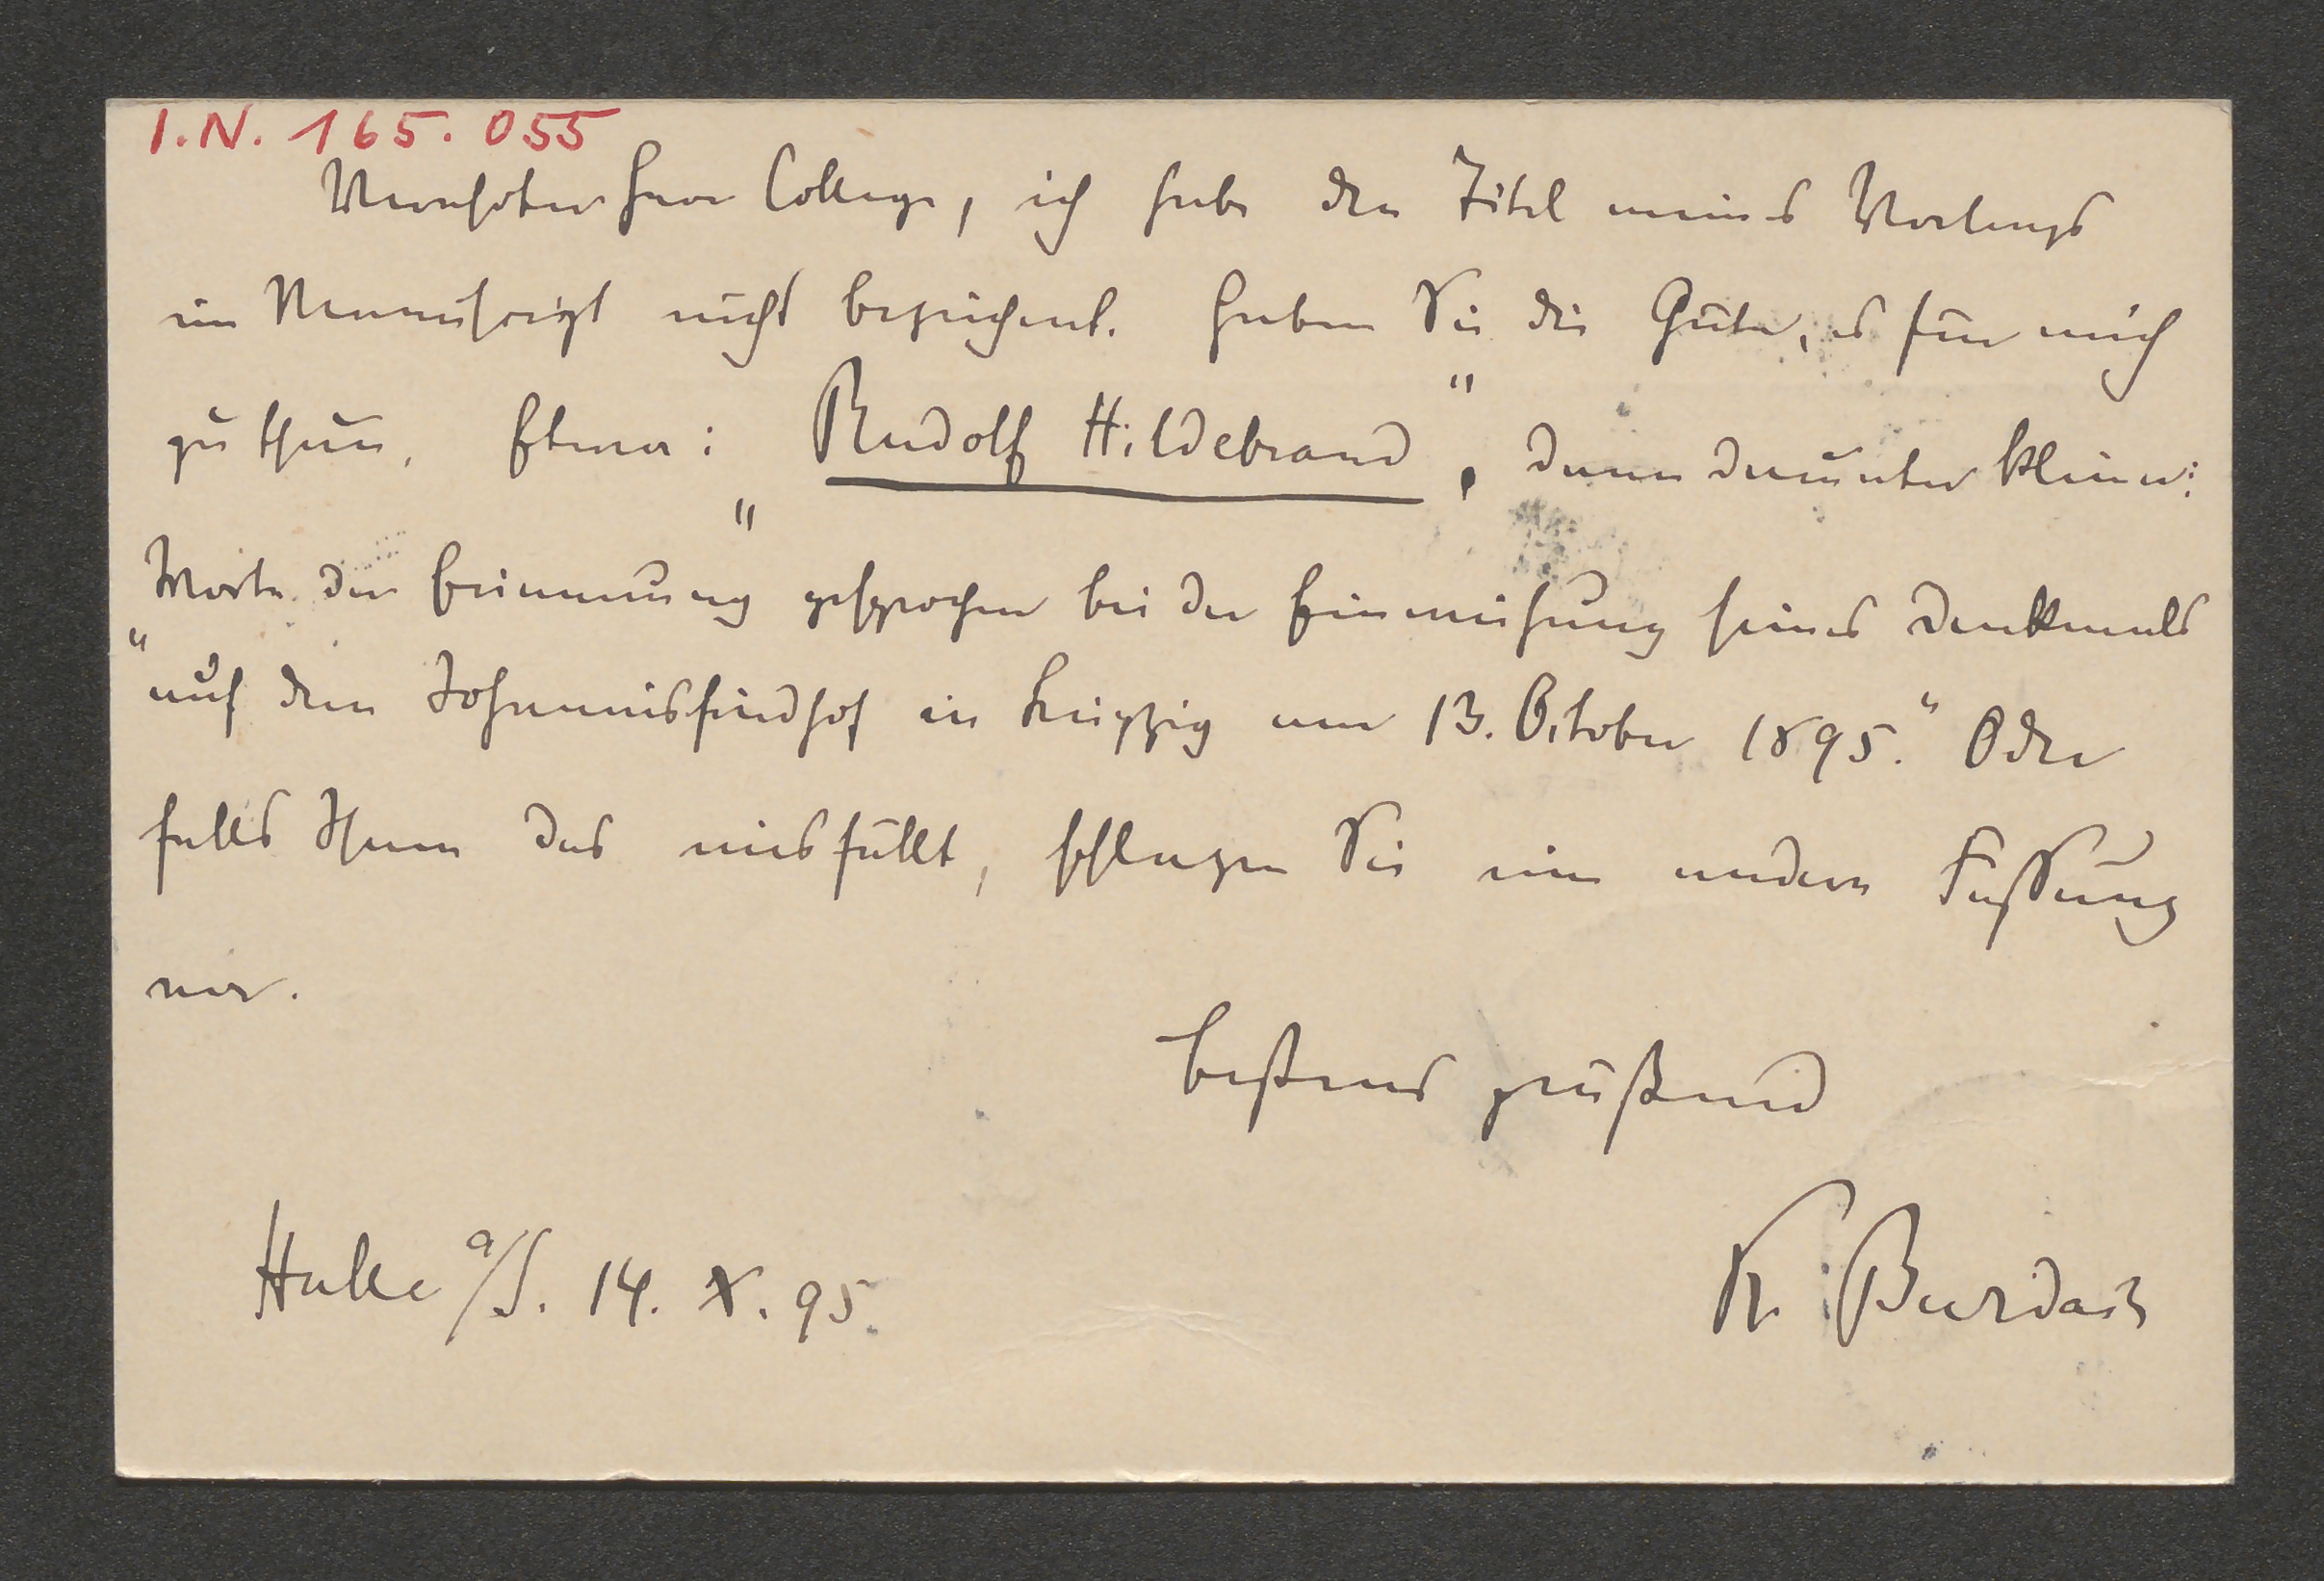 I.N. 165.055
Verehrter Herr College, ich habe den Titel meines Vortrags
im Manuskript nicht bezeichnet. Haben Sie die Güte, es für mich
zu thun. Etwa: „Rudolf Hildebrand“, dann darunter kleiner:
„Worte der Erinnerung gesprochen bei der Einweihung seines Denkmals
auf dem Johannisfriedhof in Leipzig am 13. October 1895.“ Oder
falls Ihnen das misfällt, schlagen Sie eine andere Fassung
vor.
Bestens grüßend
Halle a/S. 14. X. 95.
K. Burdach